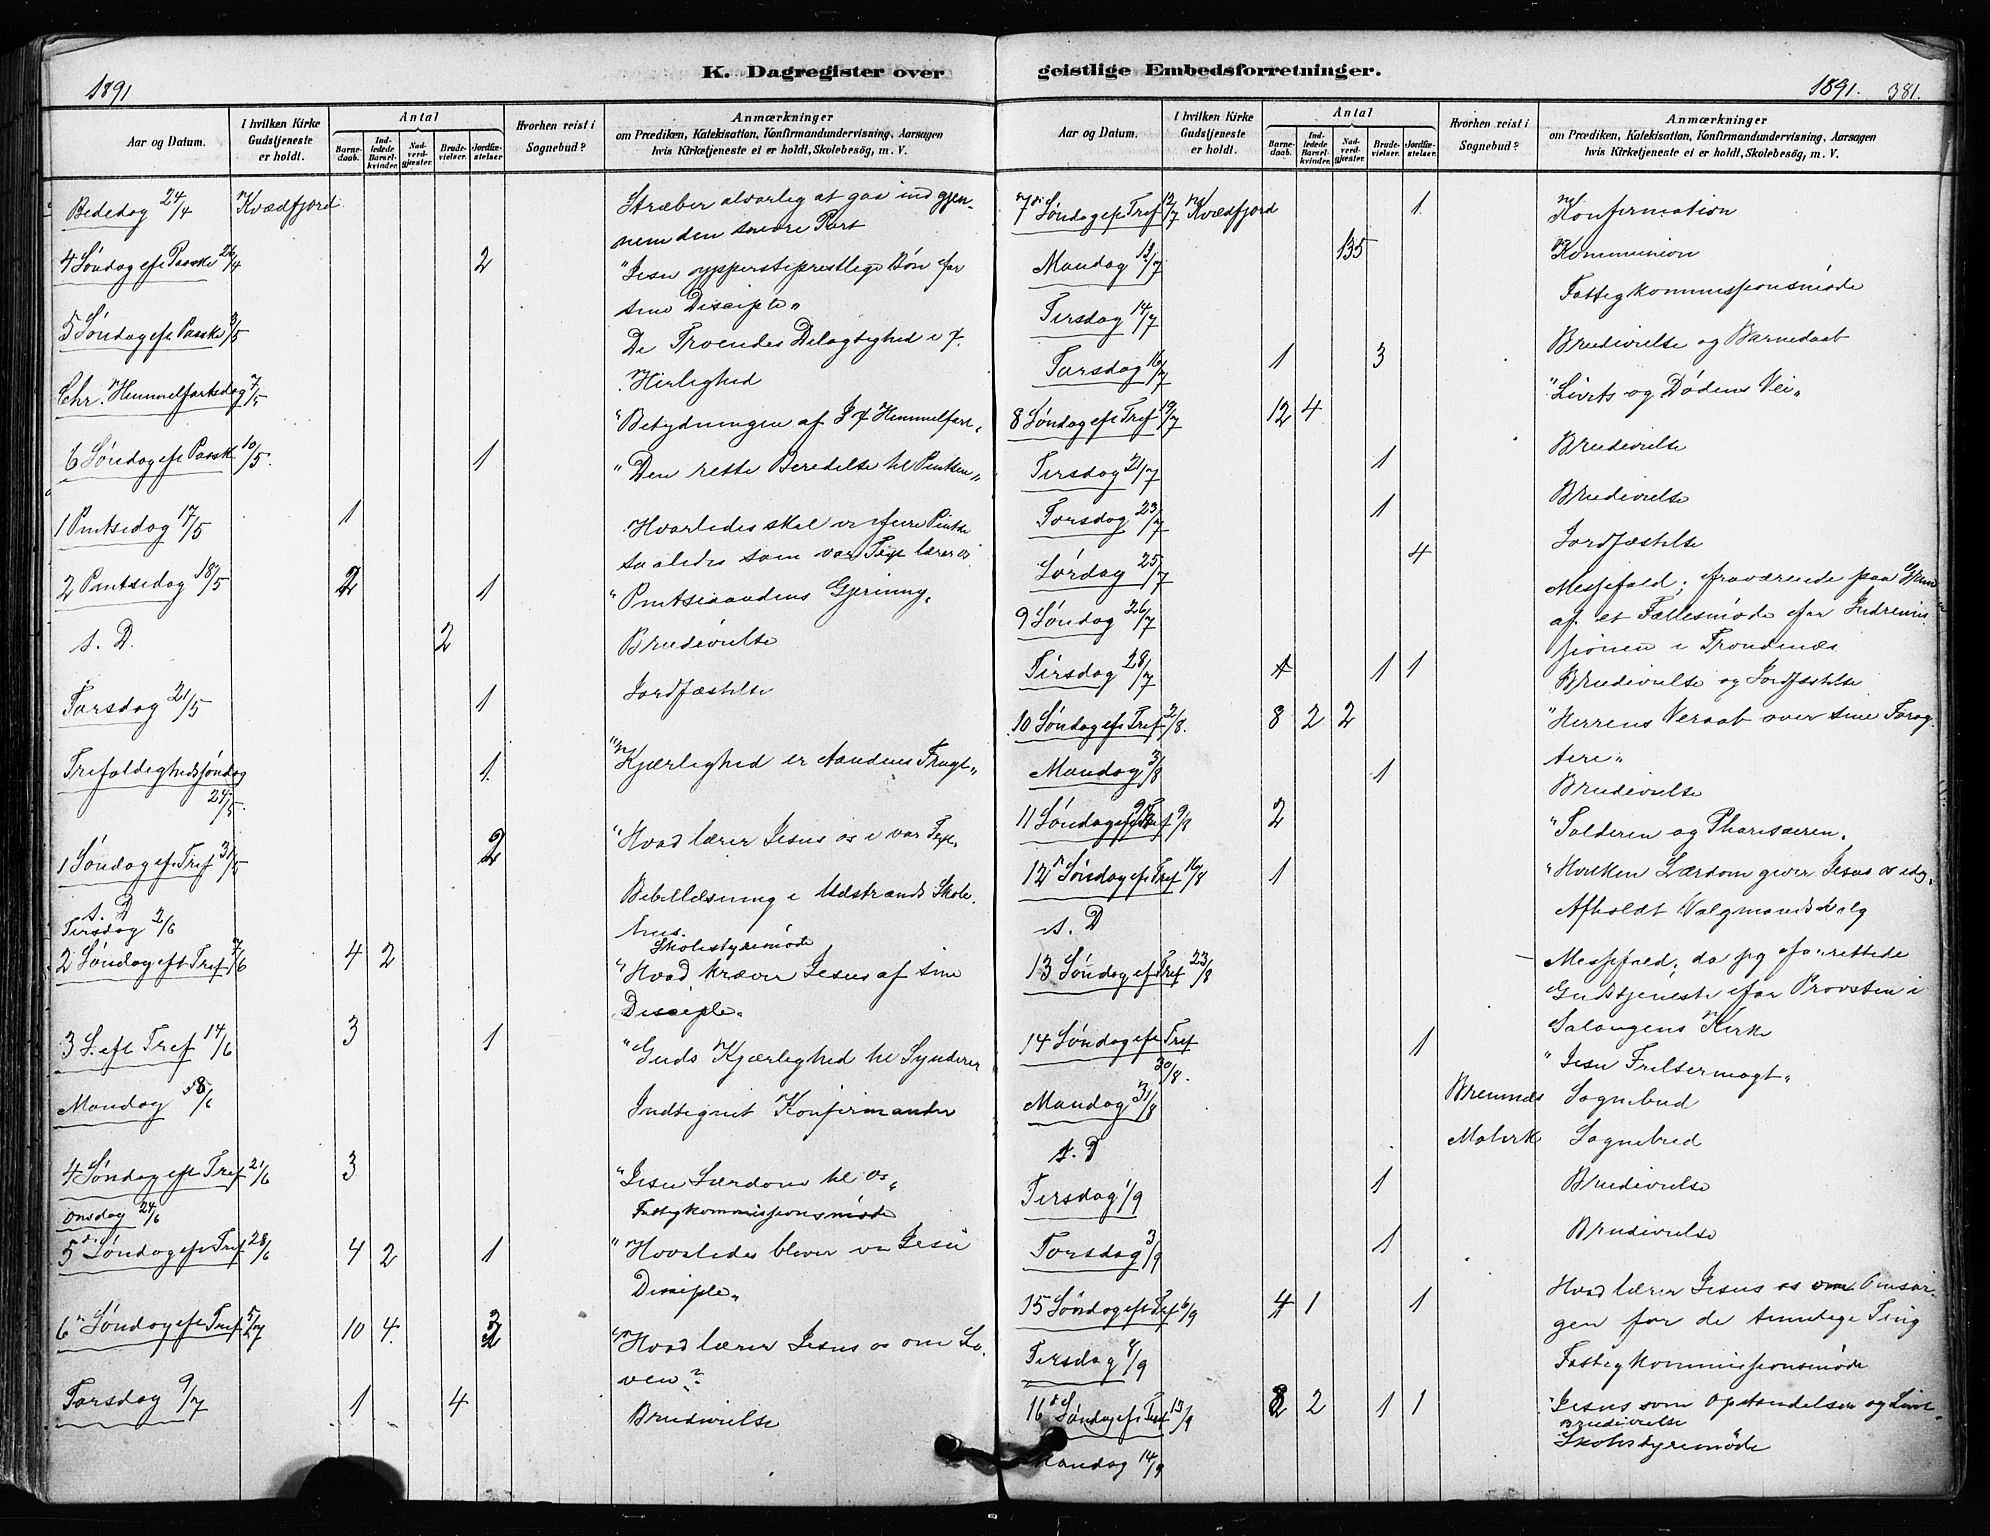 K. Dagregister over geistlige Embedsforretninger.
1891
1891. 381.
Aar og Datum.
I hvilken Kirke Gudstjeneste er holdt.
Antal
Barnedaab.
Indledede Barselkvinder.
Nadverdgjester.
Brudevielser.
Jordfæstelser
Hvorhen reist i Sognebud?
Anmærkninger
om Prædiken, Katekisation, Konfirmandundervisning, Aarsagen
hvis Kirketjeneste ei er holdt, Skolebesøg, m. V.
Bededag 24/4 Kvædfjord Stræber alvorlig at gaa ind gjen-
nem den snevre Port
4 Søndag eft Paaske 26/4 2 "Jesu ypperstepræstlige Bøn for
sine Disciple"
5 Søndag eft Paaske 3/5 De Troendes Delagtighed i
Herlighed
Chr. Himmelfartsdag 7/5 "Betydningen af Himmelfart"
6 Søndag eft Paask 10/5. 1 "Den rette Beredelse til Pintsen"
1 Pintsedag 17/5 1 Hvorledes skal vi feire Pintse
saaledes som vor Text lærer os
2 Pintsedag 18/5 2 1 "Pintseaandens Gjerning"
s. D. 2 Brudevielse
Torsdag 21/5 1 Jordfæstelse
Trefoldighedssøndag 1. "Kjærlighed er Aandens Frugt"
24/5.
1 Søndag eft Tref 31/5 2 "Hvad lærer Jesus os i vor Text"
s. D Bibellæsning i Udstrands Skole-
hus.
Tirsdag 2/6 Skolestyremøde
2 Søndag eft Tref 7/6 4 2 "Hvad kræver Jesus af sine
Disciple"
3 S. eft Tref 14/6 3 1 "Guds Kjærlighed til Syndere
Mandag 8/6 Indtegnet Konfirmander
4 Søndag eft Tref 21/6 3 "Jesu Lærdom til os"
Onsdag 24/6 Fattigkommissionsmøde
5 Søndag eft Tref 28/6 4 2 1 "Hvorledes bliver vi Jesu
Disciple"
6 Søndag eft Tref 5/7 10 4. "Hvad lærer Jesus os om Lo-
ven"?
Torsdag 9/7 1 4 Brudevielse
Aar og Datum.
I hvilken Kirke Gudstjeneste er holdt.
Antal
Barnedaab.
Indledede Barselkvinder.
Nadverdgjester.
Brudevielser.
Jordfæstelser.
Hvorhen reist i Sognebud?
Anmærkninger
om Prædiken, Katekisation, Konfirmandundervisning, Aarsagen
hvis Kirketjeneste ei er holdt, Skolebesøg, m. V.
7 Søndag eft Tref 12/7 Kvædfjord 1. Konfirmation
Mandag 13/7 135 Kommunion
Tirsdag 14/7 Fattigkommissionsmøde
Torsdag 16/7 1 3 Brudevielse og Barnedaab
8 Søndag eft Tref 19/7 12 4 "Livets og Dødens Vei"
Tirsdag 21/7 1 Brudevielse
Torsdag 23/7 1 Brudevielse
Lørdag 25/7 4 Jordfæstelse
9 Søndag 26/7 Messefald; fraværende paa Grund
af et Fællesmøde for Indremis-
sionen i Trondenæs
Tirsdag 28/7 1 1 Brudevielse og Jordfæstelse
10 Søndag eft Tref 2/8. 8 2 2 "Herrens Veraab over sine Forag-
tere"
Mandag 3/8 1 Brudevielse
11 Søndag eft Tref 9/8 2 "Tolderen og Pharisæeren"
12 Søndag eft Tref 16/8 1 "Hvilken Lærdom giver Jesus os idag"
s. D Afholdt Valgmandsvalg
13 Søndag eft Tref 23/8 Messefald; da jeg forrettede
Gudstjeneste for Provsten i
Salangens Kirke
14 Søndag eft Tref 30/8. 1 "Jesu Frelsermagt"
Mandag 31/8 Bremnes Sognebud
s. D Sognebud
Tirsdag 1/9 1 Brudevielse
Torsdag 3/9 1 Brudevielse
15 Søndag eft Tref 6/9 4 1 1 Hvad lærer Jesus os om Omsor-
gen for de timelige Ting
Tirsdag 8/9 Fattigkommissionsmøde
16 Søndag eft Tref 13/9 2 1 1 Jesus som Opstandelsen og Livet"
Brudevielse
Mandag 14/9 Skolestyremøde